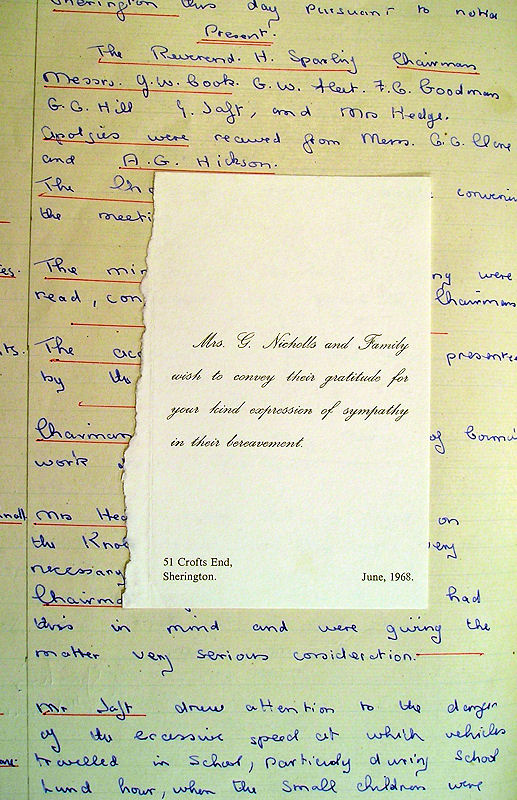 Sherington this day pursuant to notice
Present.
The Reverend. H. Sparling Chairman
Messrs. G.W. Cook. G.W. F.C. Goodman
G.C. Hill Y. Taft, and Mrs Hedge.
were received from Messrs. C.C.
and A.G. Hickson.
The convening
the meeti
The min ng were
read, con Chairman
The acc presented
by the
Mrs. G. Nicholls and Family
wish to convey their gratitude for
your kind expression of sympathy
in their bereavement.
51 Crofts End,
Sherington. June, 1968.
Chairman of
work
Mrs Hed on
the
necessary
Chairma had
this in mind and were giving the
matter very serious consideration.
Mr Taft drew attention to the danger
of the excessive speed at which vehicles
travelled in School, during School
hour, when the small children were